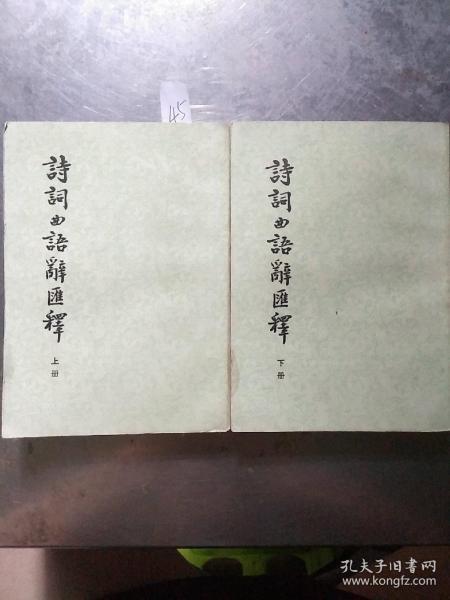 45
詩詞曲語辭匯釋
上册
詩詞曲語辭匯釋
下册
孔夫子旧书网
www.kongfz.com